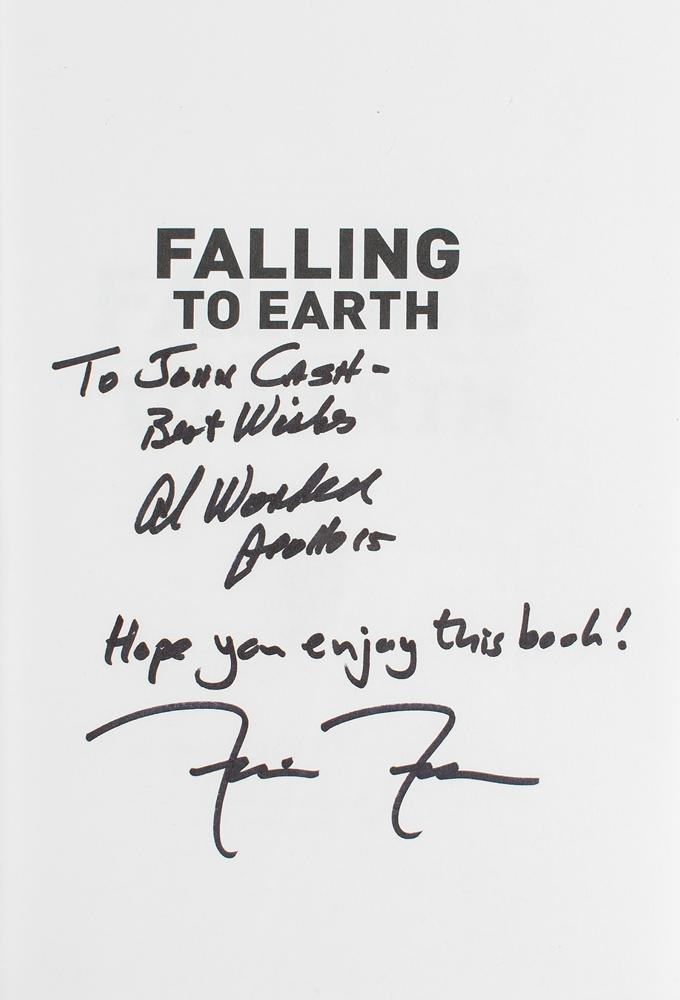 FALLING
TO EARTH
To John Cash -
Best Wishes
Al Worden
Apollo 15
Hope you enjoy this book!